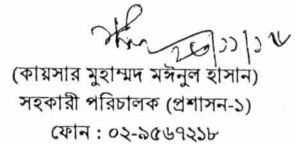 ২৩/১১/১৫
(কায়সার মুহাম্মদ মঈনুল হাসান)
সহকারী পরিচালক (প্রশাসন-১)
ফোন : ০২-৯৫৬৭২১৮